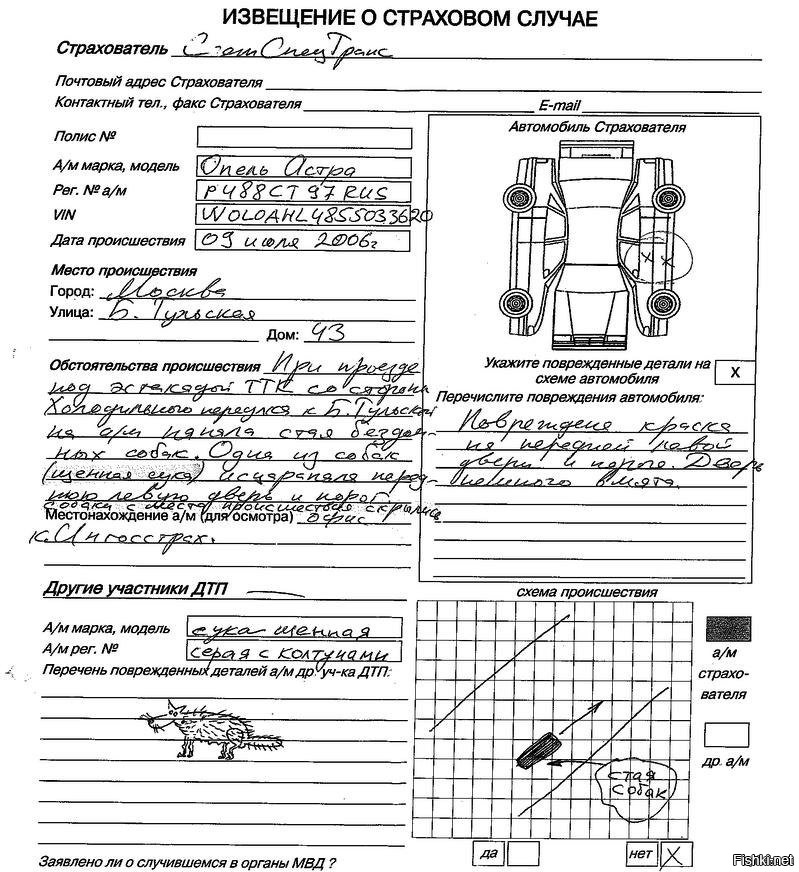 ИЗВЕЩЕНИЕ О СТРАХОВОМ СЛУЧАЕ
Страхователь СпецТранс
Почтовый адрес Страхователя
Контактный тел., факс Страхователя E-mail
Полис №
А/м марка, модель Опель Астра
Рег. № а/м Р488СТ 97 RUS
VIN W0L0AHL4855033620
Дата происшествия 09 июля 2006г
Место происшествия
Город: Москва
Улица: Б. Тульская
Дом: 43
Обстоятельства происшествия При проезде
под эстакадой ТТК со стороны
Холодильного переулка к Б. Тульской
на а/м напала стая бездом-
ных собак. Одна из собак
(щенная сука) исцарапала перед-
нюю левую дверь и порог
собаки с места происшествия скрылись
Местонахождение а/м (для осмотра) офис
к. Ингосстрах.
Автомобиль Страхователя
х х
Укажите поврежденные детали на
схеме автомобиля
X
Перечислите повреждения автомобиля:
Повреждена краска
на передней левой
двери и пороге. Дверь
немного вмята.
Другие участники ДТП
А/м марка, модель сука щенная
А/м рег. № серая с колтунами
Перечень поврежденных деталей а/м др. уч-ка ДТП:
схема происшествия
стая
собак
а/м
страхо-
вателя
др. а/м
Заявлено ли о случившемся в органы МВД ?
да нет X
Fishki.net